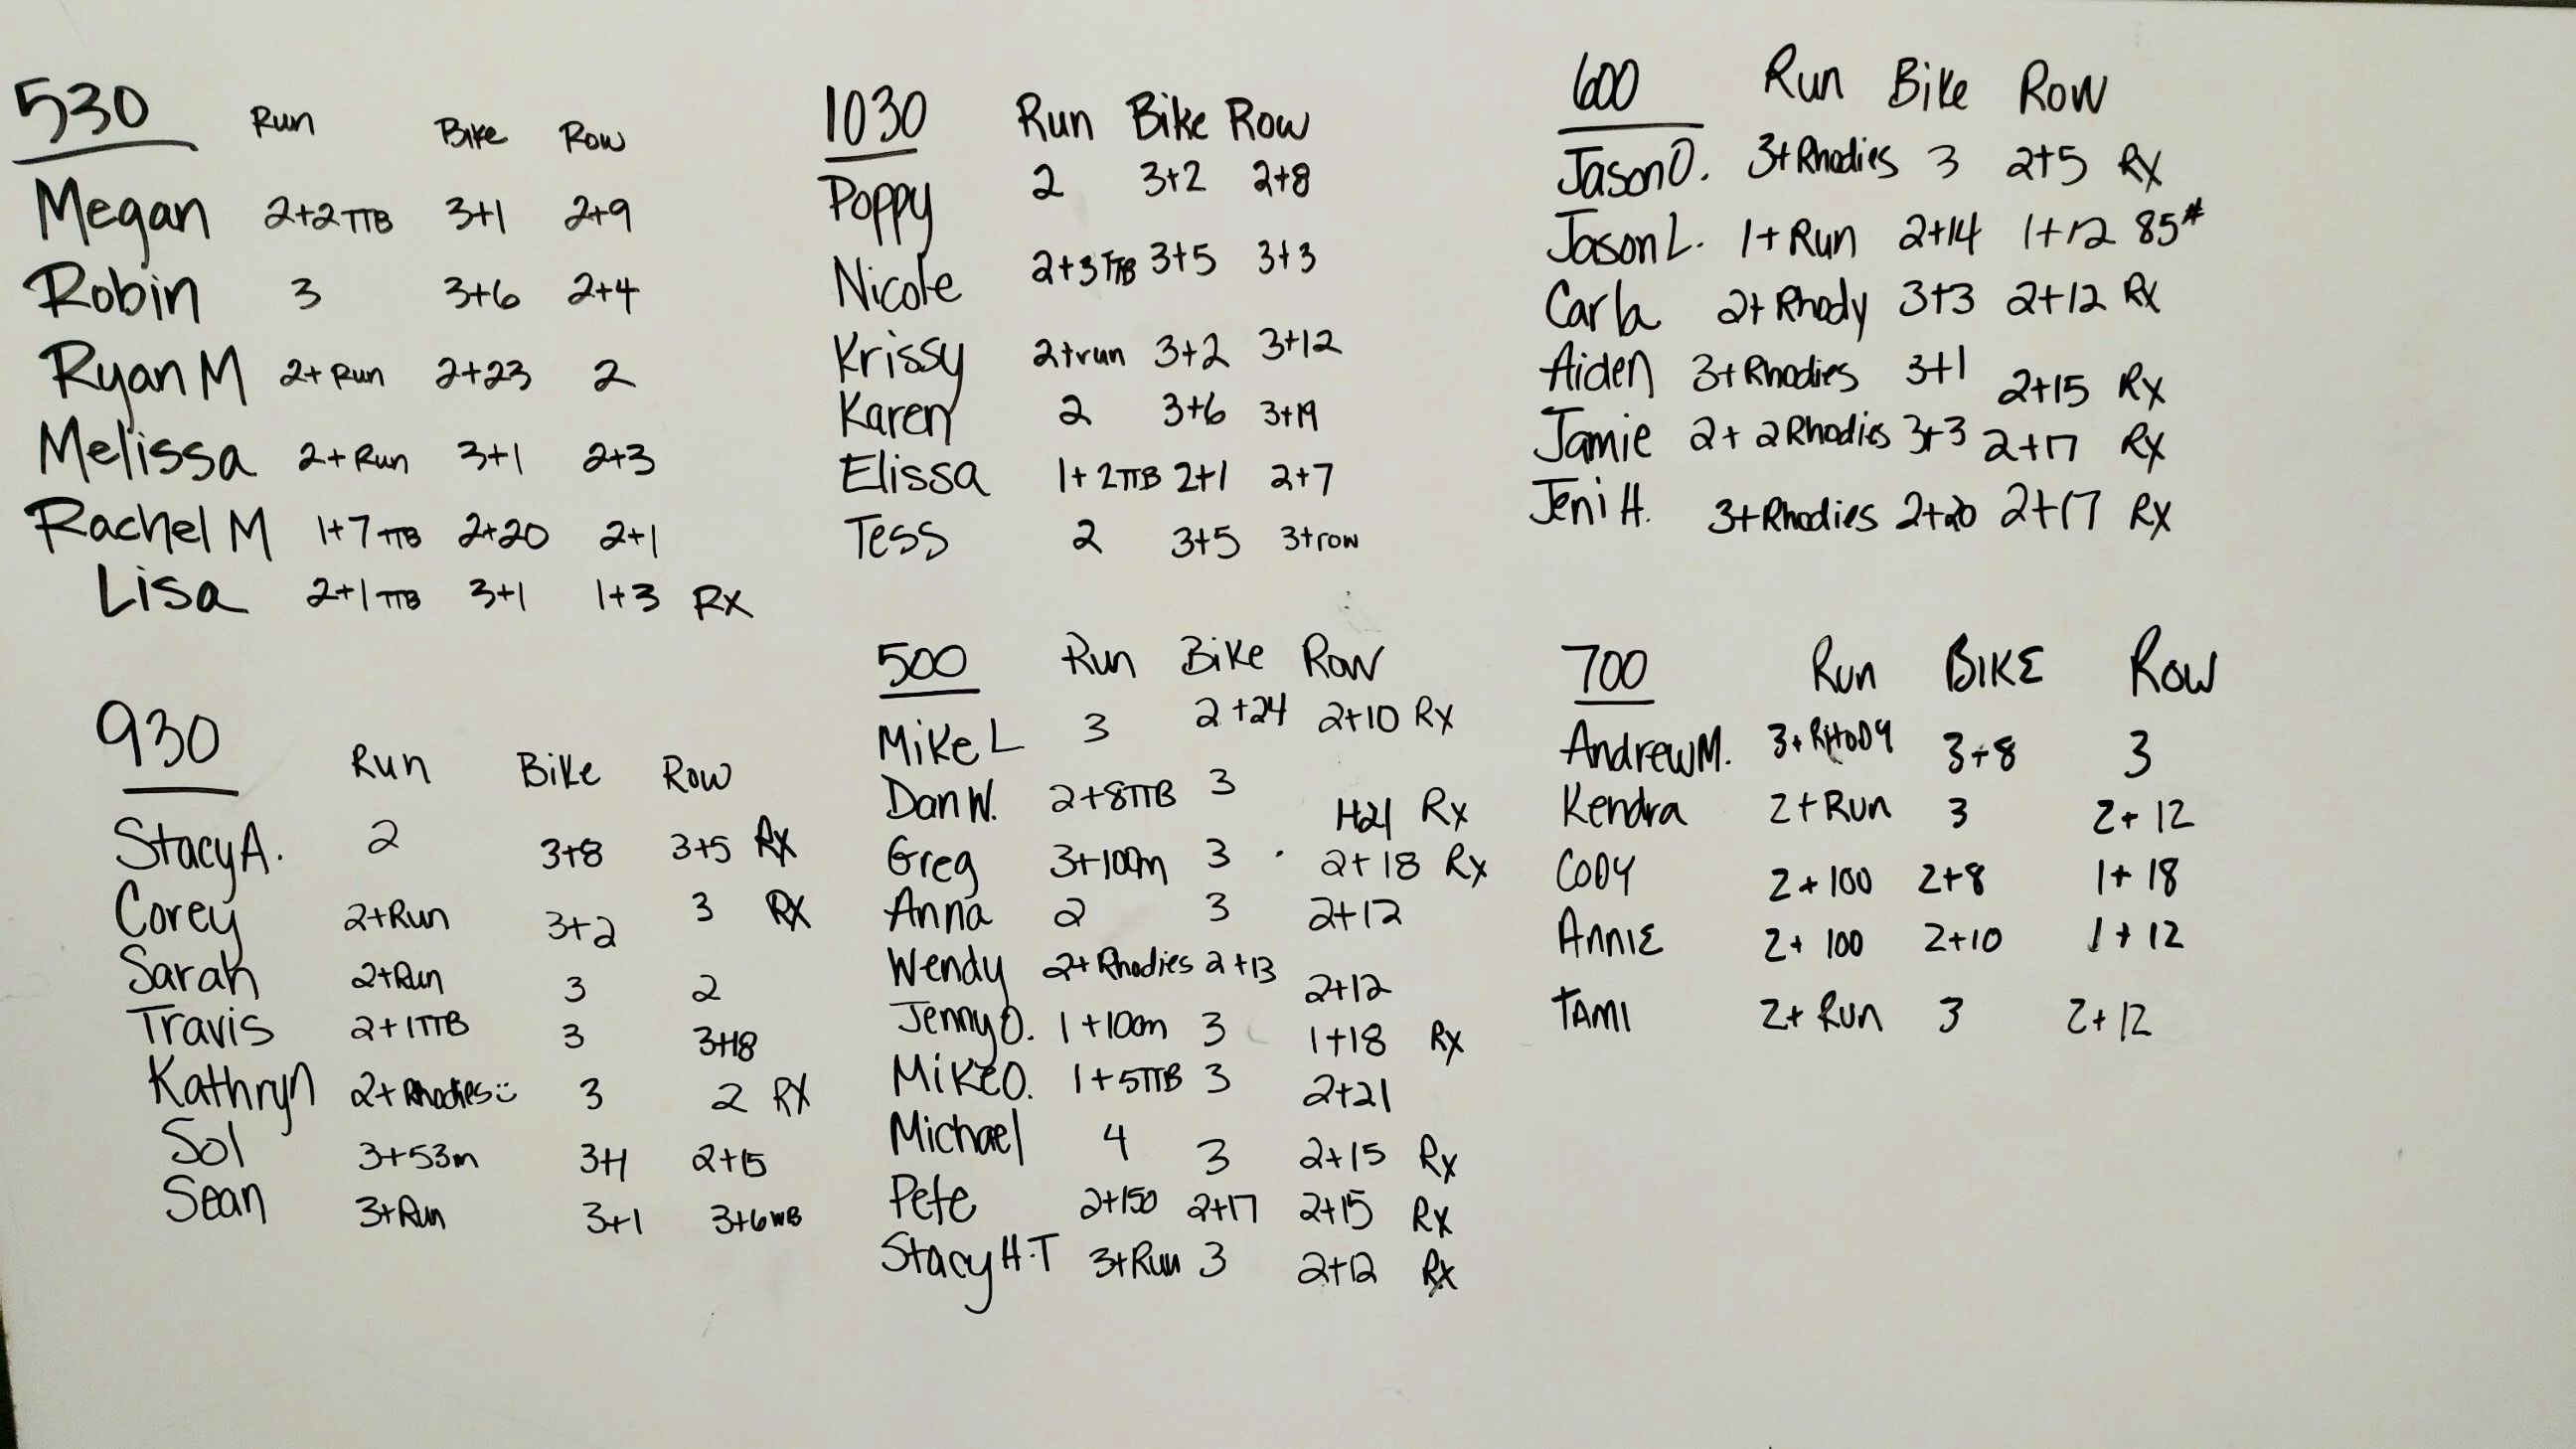 530 Run Bike Row
Megan 2+2 TTB 3+1 2+9
Robin 3 3+6 2+4
Ryan M 2+ Run 2+23 2
Melissa 2+ Run 3+1 2+3
Rachel M 1+7 TTB 2+20 2+1
Lisa 2+1 TTB 3+1 1+3 RX
930 Run Bike Row
Stacy A. 2 3+8 3+5 RX
Corey 2+Run 3+2 3 RX
Sarah 2+Run 3 2
Travis 2+1TTB 3 3+18
Kathryn 2+ Rhodies 3 2 RX
Sol 3+53m 3+1 2+15
Sean 3+Run 3+1 3+6 WB
1030 Run Bike Row
Poppy 2 3+2 2+8
Nicole 2+3 TTB 3+5 3+3
Krissy 2+run 3+2 3+12
Karen 2 3+6 3+19
Elissa 1+ 2TTB 2+1 2+7
Tess 2 3+5 3+row
500 Run Bike Row
Mike L 3 2+24 2+10 Rx
Dan W. 2+8TTB 3 1+21 Rx
Greg 3+100m 3 2+18 Rx
Anna 2 3 2+12
Wendy 2+ Rhodies 2+13 2+12
Jenny O. 1+100m 3 1+18 Rx
Mike O. 1+5TTB 3 2+21
Michael 4 3 2+15 Rx
Pete 2+150 2+17 2+15 Rx
Stacy H-T 3+Run 3 2+12 Rx
600 Run Bike Row
Jason O. 3+Rhodies 3 2+5 Rx
Jason L. 1+ Run 2+14 1+12 85#
Carla 2+ Rhody 3+3 2+12 Rx
Aiden 3+Rhodies 3+1 2+15 Rx
Jamie 2+ 2 Rhodies 3+3 2+17 Rx
Jeni H. 3+Rhodies 2+20 2+17 Rx
700 Run BIKE Row
Andrew M. 3+ RHODY 3+8 3
Kendra 2+Run 3 2+12
CODY 2+100 2+8 1+18
ANNIE 2+ 100 2+10 1+12
TAMI 2+ Run 3 2+12